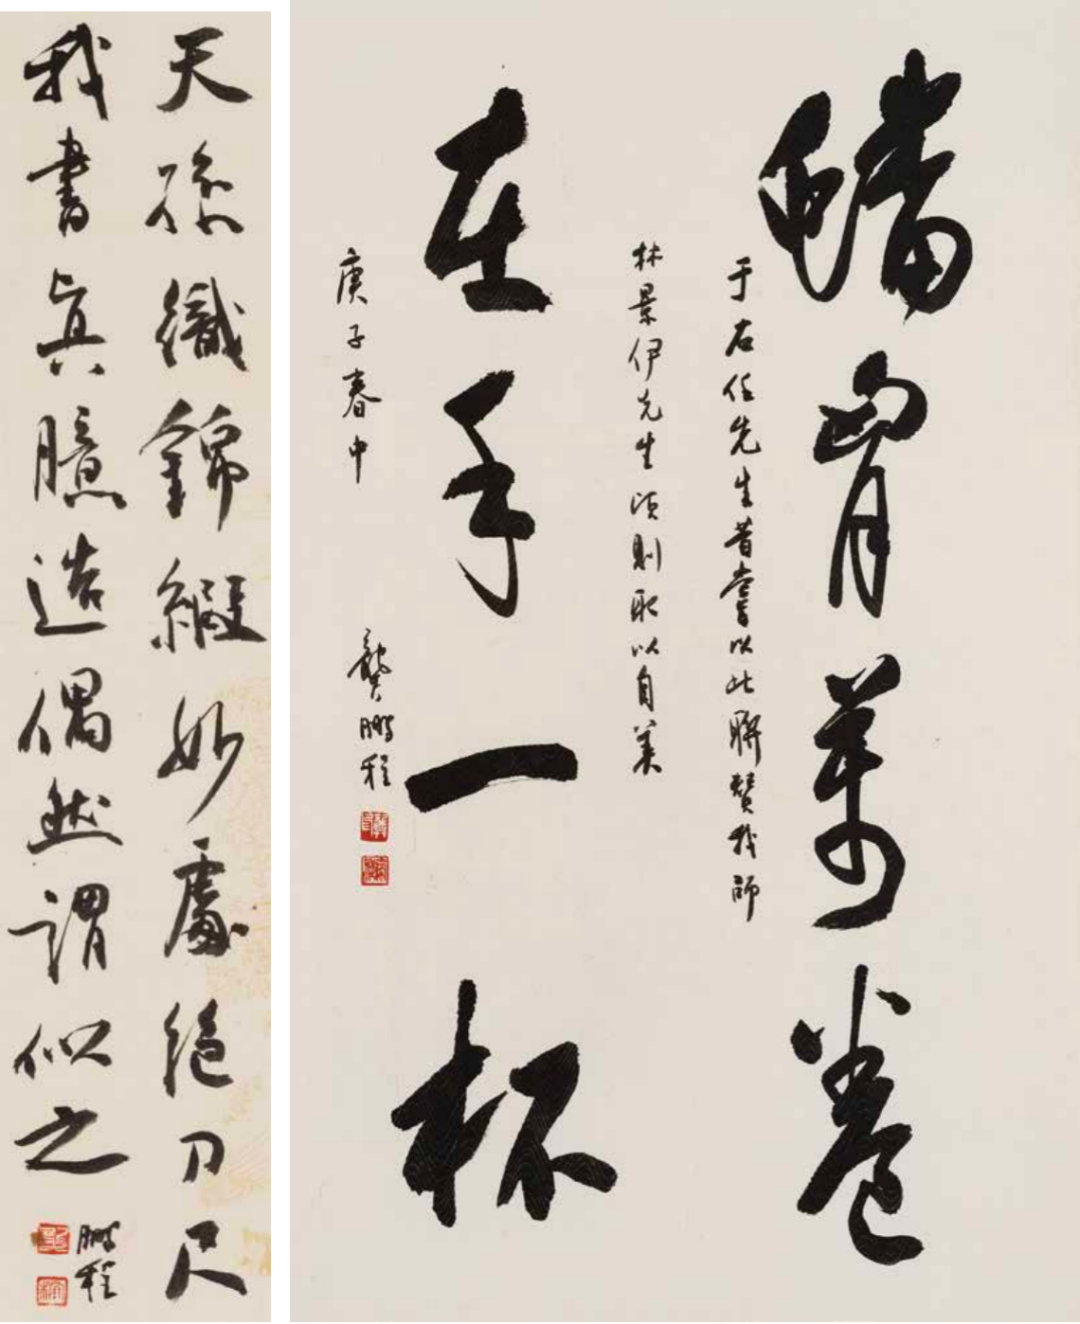 蟠胷萬卷
于右任先生昔嘗以此聯贊我師
林景伊先生頃則取以自美
在手一杯
庚子春中 龔鵬程
天孫織錦緞妙處絕刀尺
我書真臆造偶然謂似之
鵬程